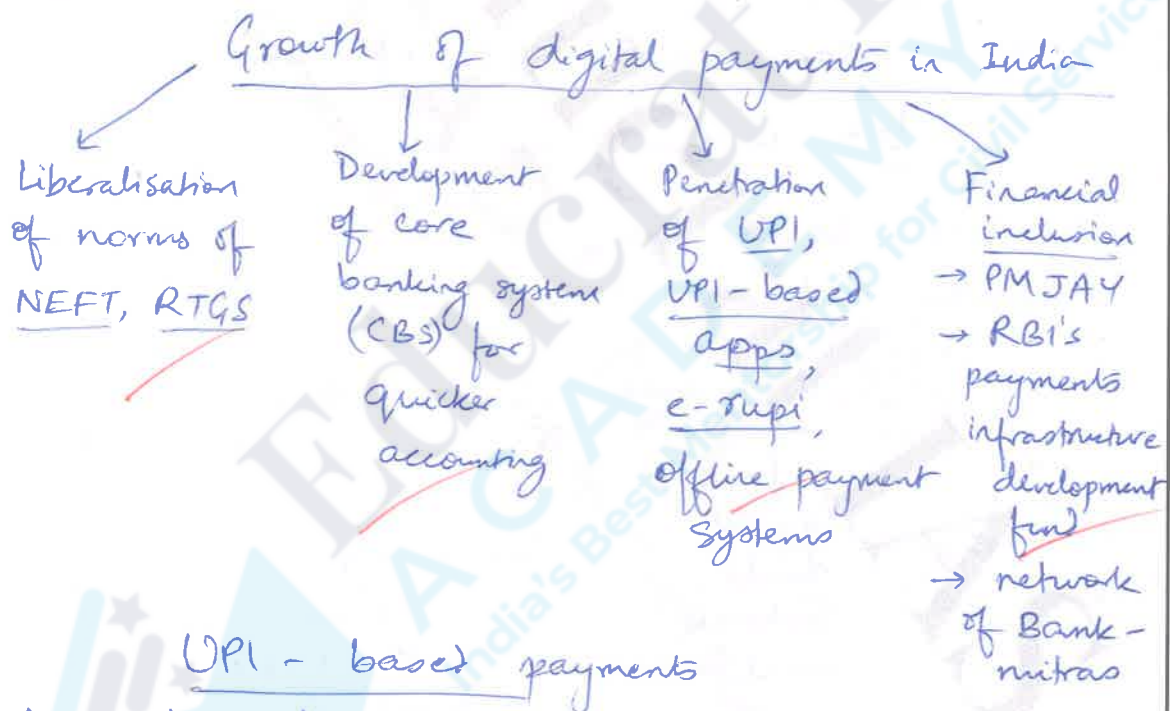 Growth of digital payments in India
Liberalisation
of norms of
NEFT, RTGS
Development
of core
banking system
(CBS) for
quicker
accounting
Penetration
of UPI,
UPI-based
apps,
e-rupi,
offline payment
systems
Financial
inclusion
→ PMJAY
→ RBI's
payments
infrastructure
development
fund
→ network
of Bank-
mitras
UPI - based payments
Educrat
ACADEMY
India's Best Mentorship for Civil Service